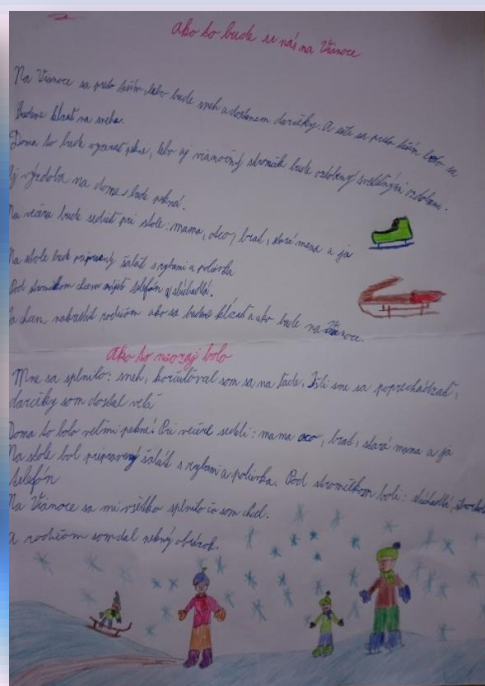 Ako to bude u nás na Vianoce
Na Vianoce sa preto teším, lebo bude sneh a dostanem darčeky. A ešte sa preto teším, lebo sa
budeme kĺzať na snehu.
Doma to bude vyzerať pekne, lebo aj vianočný stromček bude ozdobený svetielkami ozdobami.
Aj výzdoba na dome bude pekná.
Na večeru bude sedieť pri stole: mama, otec, brat, stará mama a ja
Na stole bude pripravený šalát s rybami a polievka
Pod stromčekom chcem nájsť telefón a slúchadlá.
nakresliť rodičom ako sa budeme kĺzať a ako bude na Vianoce.
Ako to naozaj bolo
Mne sa splnilo: sneh, korčuľoval som sa na ľade. Išli sme sa poprechádzať,
darčeky som dostal veľa
Doma to bolo veľmi pekné! Pri večeri sedeli: mama oco, brat, stará mama a ja
Na stole bol pripravený šalát s rybami a polievka. Pod stromčekom boli: slúchadlá,
telefón
Na Vianoce sa mi všetko splnilo čo som chcel.
A rodičom som dal pekný obrázok.